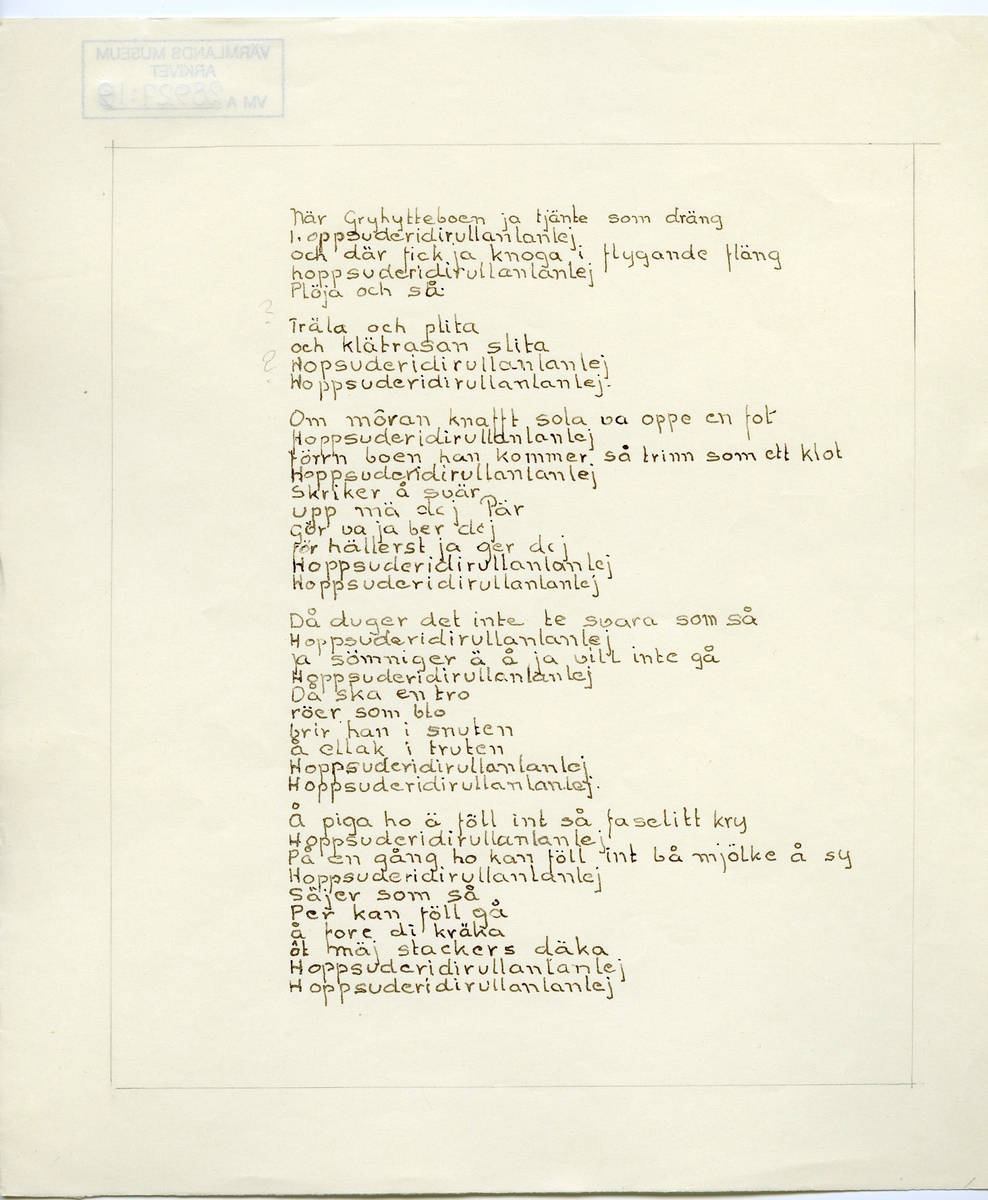 VÄRMLANDS MUSEUM
ARKIVET
VM A
När Gryhytteboen ja tjänte som dräng
Hoppsuderidirullanlanlej
och där fick ja knoga i flygande fläng
hoppsuderidirullanlanlej
Plöja och så
?
Träla och plita
och klätrasan slita
?
Hopsuderidirullanlanlej
Hoppsuderidirullanlanlej.
Om môran knafft sola va oppe en fot
Hoppsuderidirullanlanlej
förrn boen han kommer så trinn som ett klot
Hoppsuderidirullanlanlej
Skriker å svär
upp mä dej Pär
Gör va ja ber dej
för hällerst ja ger dej
Hoppsuderidirullanlanlej
Hoppsuderidirullanlanlej
Då duger det inte te svara som så
Hoppsuderidirullanlanlej
ja sömniger ä å ja vill inte gå
Hoppsuderidirullanlanlej
Då ska en tro
röer som blo
brir han i snuten
å ellak i truten
Hoppsuderidirullanlanlej
Hoppsuderidirullanlanlej.
Å piga ho ä föll int så faselitt kry
Hoppsuderidirullanlanlej
På en gång ho kan föll int bå mjölke å sy
Hoppsuderidirullanlanlej
Säjer som så
Per kan föll gå
å fore di kräka
ôt mäj stackers däka
Hoppsuderidirullanlanlej
Hoppsuderidirullanlanlej